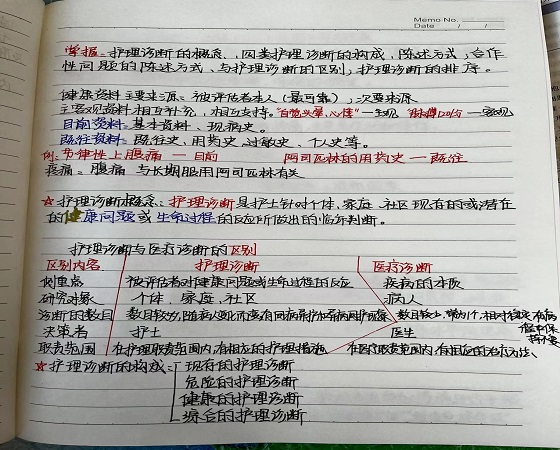 Memo No.
Date / /
掌握:护理诊断的概念、四类护理诊断的构成,陈述方式,合作
性问题的陈述方式,与护理诊断的区别,护理诊断的排序。
健康资料主要来源:被评估者本人(最可靠),次要来源
主客观资料相互补充,相互支持。"自觉头晕、心悸"—主观 —客观
目前资料:基本资料、现病史。
既往资料:既往史、用药史、过敏史、个人史等。
例:节律性上腹痛—目前 阿司匹林的用药史—既往
疼痛:腹痛 与长期服用阿司匹林有关
☆护理诊断概念:护理诊断是护士针对个体、家庭、社区现存的或潜在
的健康问题或生命过程的反应所做出的临床判断。
护理诊断与医疗诊断的区别
区别内容 护理诊断 医疗诊断
侧重点 被评估者对健康问题或生命过程的反应 疾病的本质
研究对象 个体、家庭、社区 病人
诊断的数目 数目较多,随病人变化而变 数目较少,
决策者 护士 医生
职责范围 在护理职责范围内,有相应的护理措施 在医疗职责范围内,有相应的治疗方法
☆护理诊断的构成: 现存的护理诊断
危险的护理诊断
健康的护理诊断
综合的护理诊断